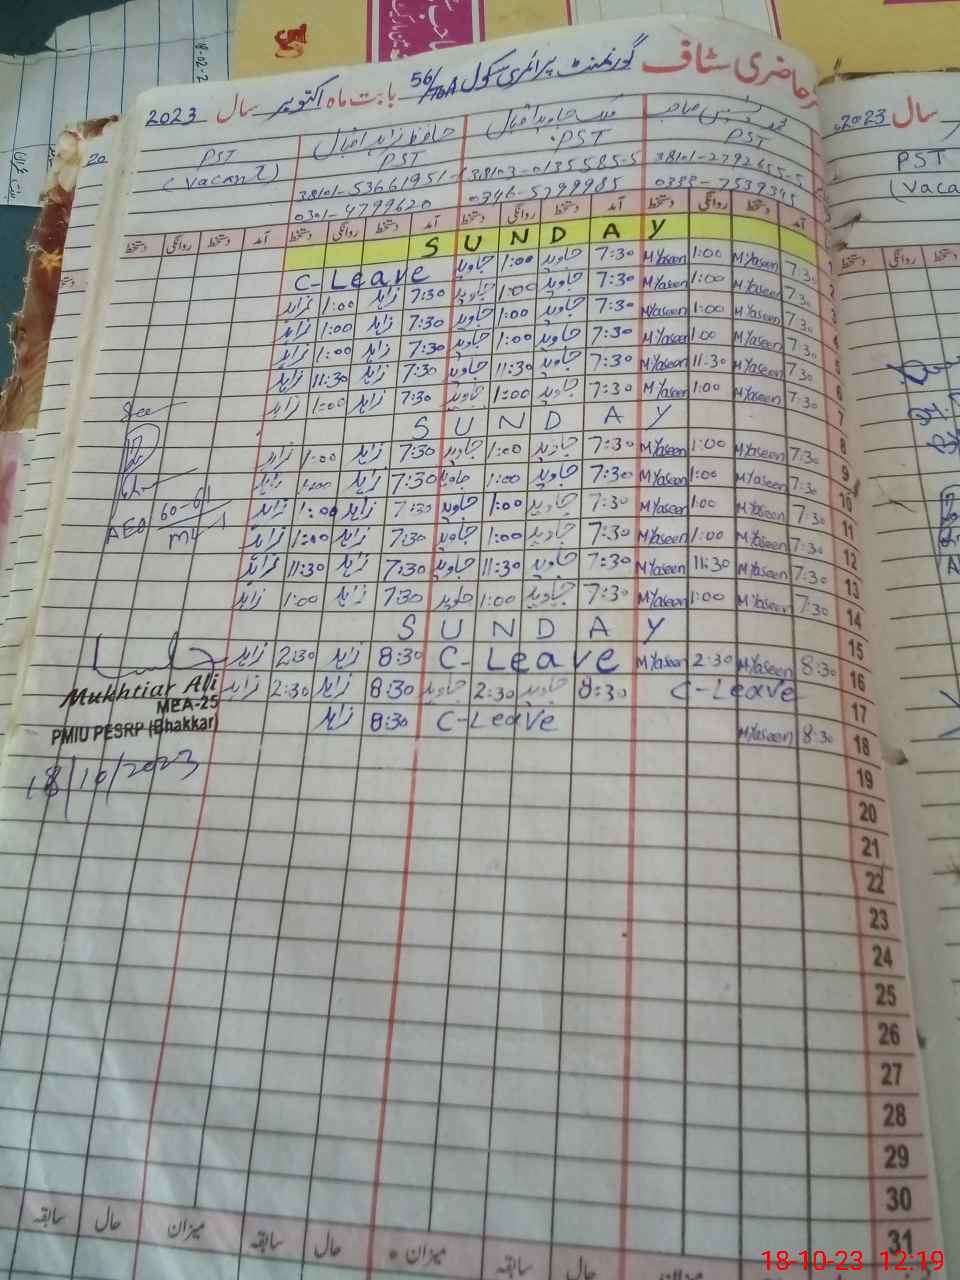 حاضری سٹاف گورنمنٹ پرائمری سکول 56/TDA بابت ماہ اکتوبر سال 2023
PST PST PST PST
(Vacant)
38103-0135585-5 38101-2792655-5
0301-4799620 0346-5799985 0333-7539345
آمد دستخط روانگی دستخط آمد دستخط روانگی دستخط آمد دستخط روانگی دستخط آمد دستخط روانگی دستخط
SUNDAY 1
7:30 M Yaseen 1:00 M Yaseen 7:30 جاوید 1:00 جاوید C-Leave 2
7:30 M Yaseen 1:00 M Yaseen 7:30 جاوید 1:00 جاوید 7:30 زاہد 1:00 زاہد 3
7:30 M Yaseen 1:00 M Yaseen 7:30 جاوید 1:00 جاوید 7:30 زاہد 1:00 زاہد 4
7:30 M Yaseen 1:00 M Yaseen 7:30 جاوید 1:00 جاوید 7:30 زاہد 1:00 زاہد 5
7:30 M Yaseen 11:30 M Yaseen 7:30 جاوید 11:30 جاوید 7:30 زاہد 11:30 زاہد 6
7:30 M Yaseen 1:00 M Yaseen 7:30 جاوید 1:00 جاوید 7:30 زاہد 1:00 زاہد 7
SUNDAY 8
7:30 M Yaseen 1:00 M Yaseen 7:30 جاوید 1:00 جاوید 7:30 زاہد 1:00 زاہد 9
7:30 M Yaseen 1:00 M Yaseen 7:30 جاوید 1:00 جاوید 7:30 زاہد 1:00 زاہد 10
7:30 M Yaseen 1:00 M Yaseen 7:30 جاوید 1:00 جاوید 7:30 زاہد 1:00 زاہد 11
7:30 M Yaseen 1:00 M Yaseen 7:30 جاوید 1:00 جاوید 7:30 زاہد 1:00 زاہد 12
7:30 M Yaseen 11:30 M Yaseen 7:30 جاوید 11:30 جاوید 7:30 زاہد 11:30 زاہد 13
7:30 M Yaseen 1:00 M Yaseen 7:30 جاوید 1:00 جاوید 7:30 زاہد 1:00 زاہد 14
SUNDAY 15
8:30 M Yaseen 2:30 M Yaseen C-Leave 8:30 زاہد 2:30 زاہد 16
C-Leave 8:30 جاوید 2:30 جاوید 8:30 زاہد 2:30 زاہد 17
8:30 M Yaseen C-Leave 8:30 زاہد 18
AEO
Mukhtiar Ali
MEA-25
PMIU PESRP (Bhakkar)
18/10/2023
19
20
21
22
23
24
25
26
27
28
29
30
31
حال سابقہ میزان حال سابقہ میزان حال سابقہ
سال 2023
PST
(Vaca
18-10-23 12:19